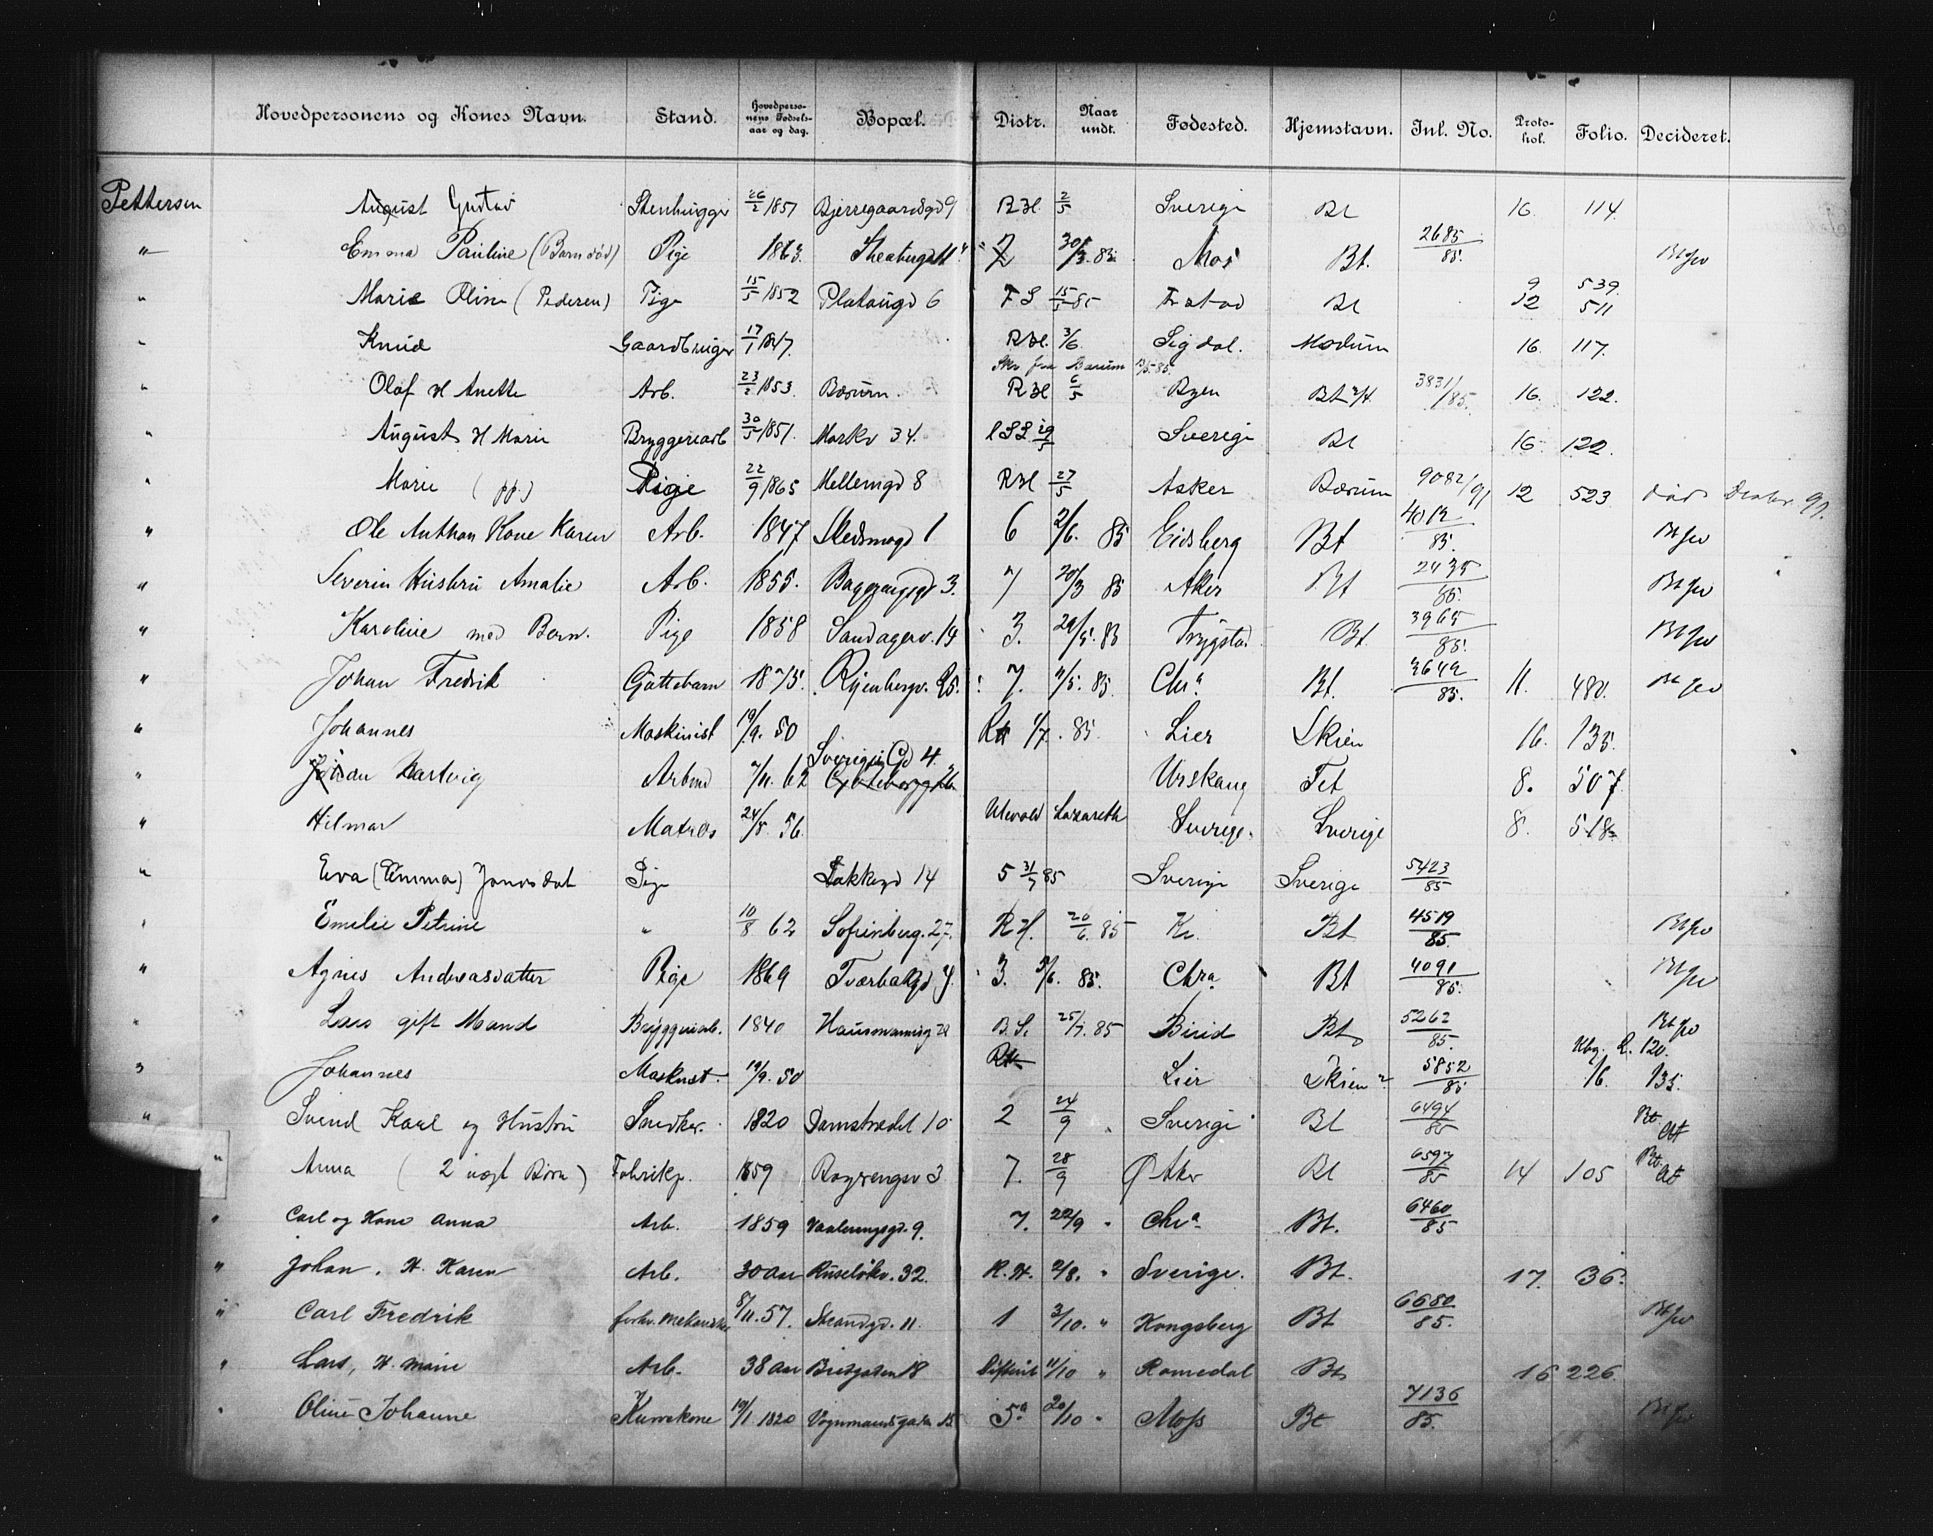 Hovedpersonens og Kones Navn. Stand. Hovedpersonens Fødselsaar og dag. Bopæl. Distr. Naar undt. Fødested. Hjemstavn. Inl. No. Protokol. Folio. Decideret.
Pettersen August Gustav Stenhugger 26/2 1851 Bjerregaardsgd 9 R.H. 2/5 Sverige Bt 16. 114.
" Emma Pauline (Barn død) Pige 1863. 7 30/3. 85. Mos Bt. 2685/85. Bt
" Marie Oline (Pedersen) Pige 15/5 1852 Platougd 6 F S 15/5 85 Bt 9 12 539. 511
" Knud Gaardbruger 17/1 1847. R.H. 3/6. Sigdal. Modum 16. 117.
Bærum 12/5. 85.
" Olaf H Anette Arb. 23/2 1853. Bærum. R H 6/5 Ryen Bt 3831/85. 16. 122.
" August H Marie Bryggeriarb 30/5 1851. Markv 34. 29/5 Sverige Bt 16. 122.
" Marie (pp.) Pige 22/9 1865 Mellemgd 8 R H 27/5 Asker Bærum 9082/91 12 523 død Decbr 91.
" Ole Anthon Kone Karen Arb. 1847 Stedsmogd 1 6 2/6. 85 Eidsberg Bt 4012/85. Bt
" Severin Hustru Amalie Arb. 1855. 3. 7 20/3 85 Aker Bt 2435/85. Bt
" Karoline med Barn. Pige 1858 Sandagerv. 14 3. 29/5. 85 Trygstad Bt 3965/85. Bt
" Johan Fredrik Guttebarn 1875. Ryenbergv. 25. 7. 11/5. 85. Chra Bt. 3642/85. 11. 480. Bt
" Johannes Maskinist 19/9. 50 RH 1/7. 85. Lier Skien 16. 135.
Sverigis Gd 4.
" Johan Hartvig Arbmd 7/11. 62 Urskaug Fet 8. 507.
" Hilmar Matros 24/5. 56. Ulevold Lazareth Sverige. Sverige 8. 518
" Eva (Emma) Jonasdat Pige Lakkegd 14 5 31/7 85 Sverige Sverige 5423/85
" Emelie Petrine " 10/8 62 Sofienberg. 27. R H. 20/6. 85 Kr. Bt 4519/85. Bt
" Agnes Andreasdatter Pige 1869 Tværbakgd 4. 3. 3/6. 85. Chra Bt 4091/85. Bt
" Lars gift Mand Bryggeriarb. 1840 Hausmannsg 28 B. S. 25/7. 85 Birid Bt 5262/85. Bt
R. 120.
" Johannes Maskinst. 19/9. 50 RH Lier Skien 5852/85 16. 135.
" Svend Karl og Hustru Snedker. 1820 Damstrædet 10 2 24/9 " Sverige Bt 6494/85 Bt
" Anna (2 uægt Børn) Fabrikp. 1859 3 7. 28/9 Ø Aker Bt 6597/85 14 105 Bt
" Carl og Kone Anna Arb. 1859 Vaalerengsgd. 9. 7. 22/9 " Chra Bt. 6460/85
" Johan. H. Karen Arb. 30 Aar Ruseløkv. 32. R. H. 2/8. " Sverige. Bt. 17. 36.
" Carl Fredrik forhv. Mekaniker 8/11. 57. Strandgd. 11. 1 3/10. " Kongsberg Bt 6680/85. Bt
" Lars, H. Marie Arb. 38 Aar Bredgaden 18 11/10 " Romedal Bt 16 226.
" Oline Johanne Kurvkone 19/1 1820 Vognmandsgaden 13. 5a 20/10 " Moss Bt 7136/85. Bt